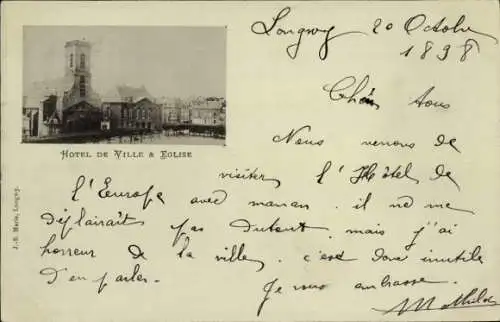 Longwy 20 Octobre
1898
Chers tous
HOTEL DE VILLE & EGLISE
Nous venons de
visiter l'Hôtel de
l'Europe avec maman. il ne me
déplairait pas dutout. mais j'ai
horreur de la ville. c'est donc inutile
d'en parler.
Je vous embrasse.
J.-B. Marie, Longwy.